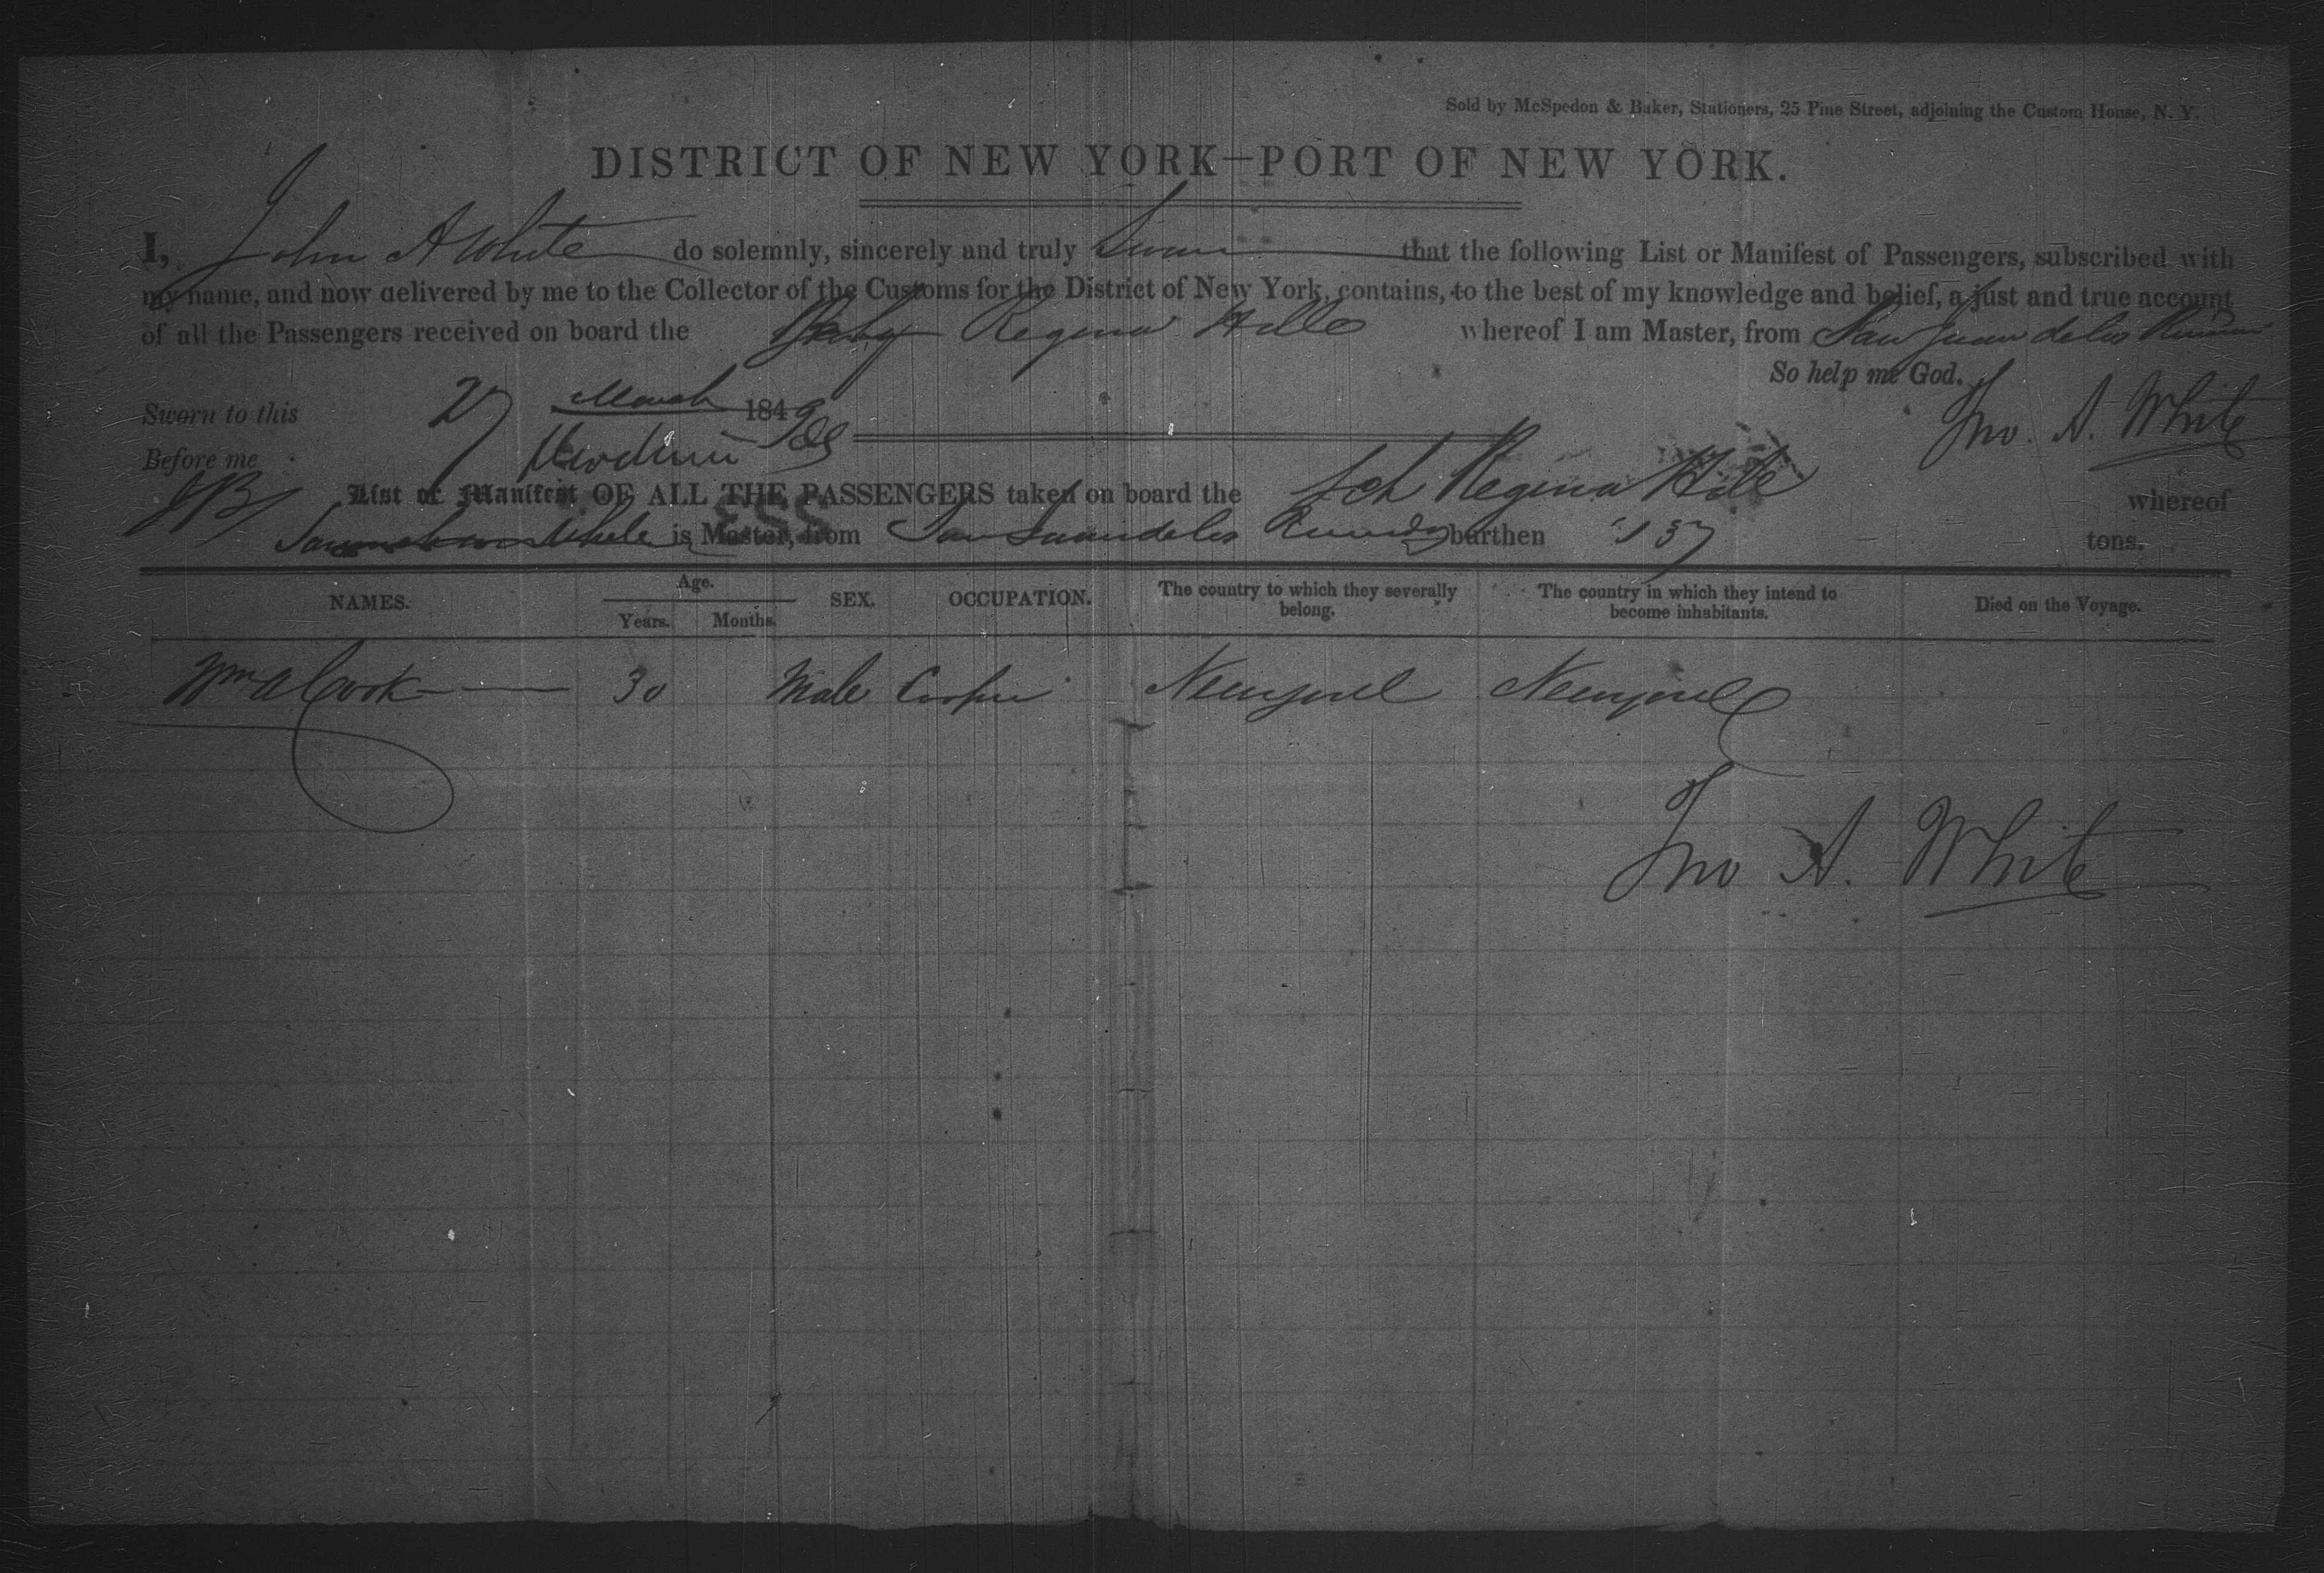 Sold by McSpedon & Baker, Stationers, 25 Pine Street, adjoining the Custom House, N. Y.
DISTRICT OF NEW YORK—PORT OF NEW YORK.
I, John A White do solemnly, sincerely and truly Swear that the following List or Manifest of Passengers, subscribed with
my name, and now delivered by me to the Collector of the Customs for the District of New York, contains, to the best of my knowledge and belief, a just and true account
of all the Passengers received on board the Regina Hill whereof I am Master, from San Juan de los
So help me God.
Sworn to this 27 March 1849 Jno. A. White
Before me
List or Manifest OF ALL THE PASSENGERS taken on board the Sch Regina Hill whereof
is Master, from San Juan de los burthen 137 tons.
NAMES. Age. Years. Months. SEX. OCCUPATION. The country to which they severally belong. The country in which they intend to become inhabitants. Died on the Voyage.
Wm A Cook 30 Male Newyork Newyork
Jno A. White